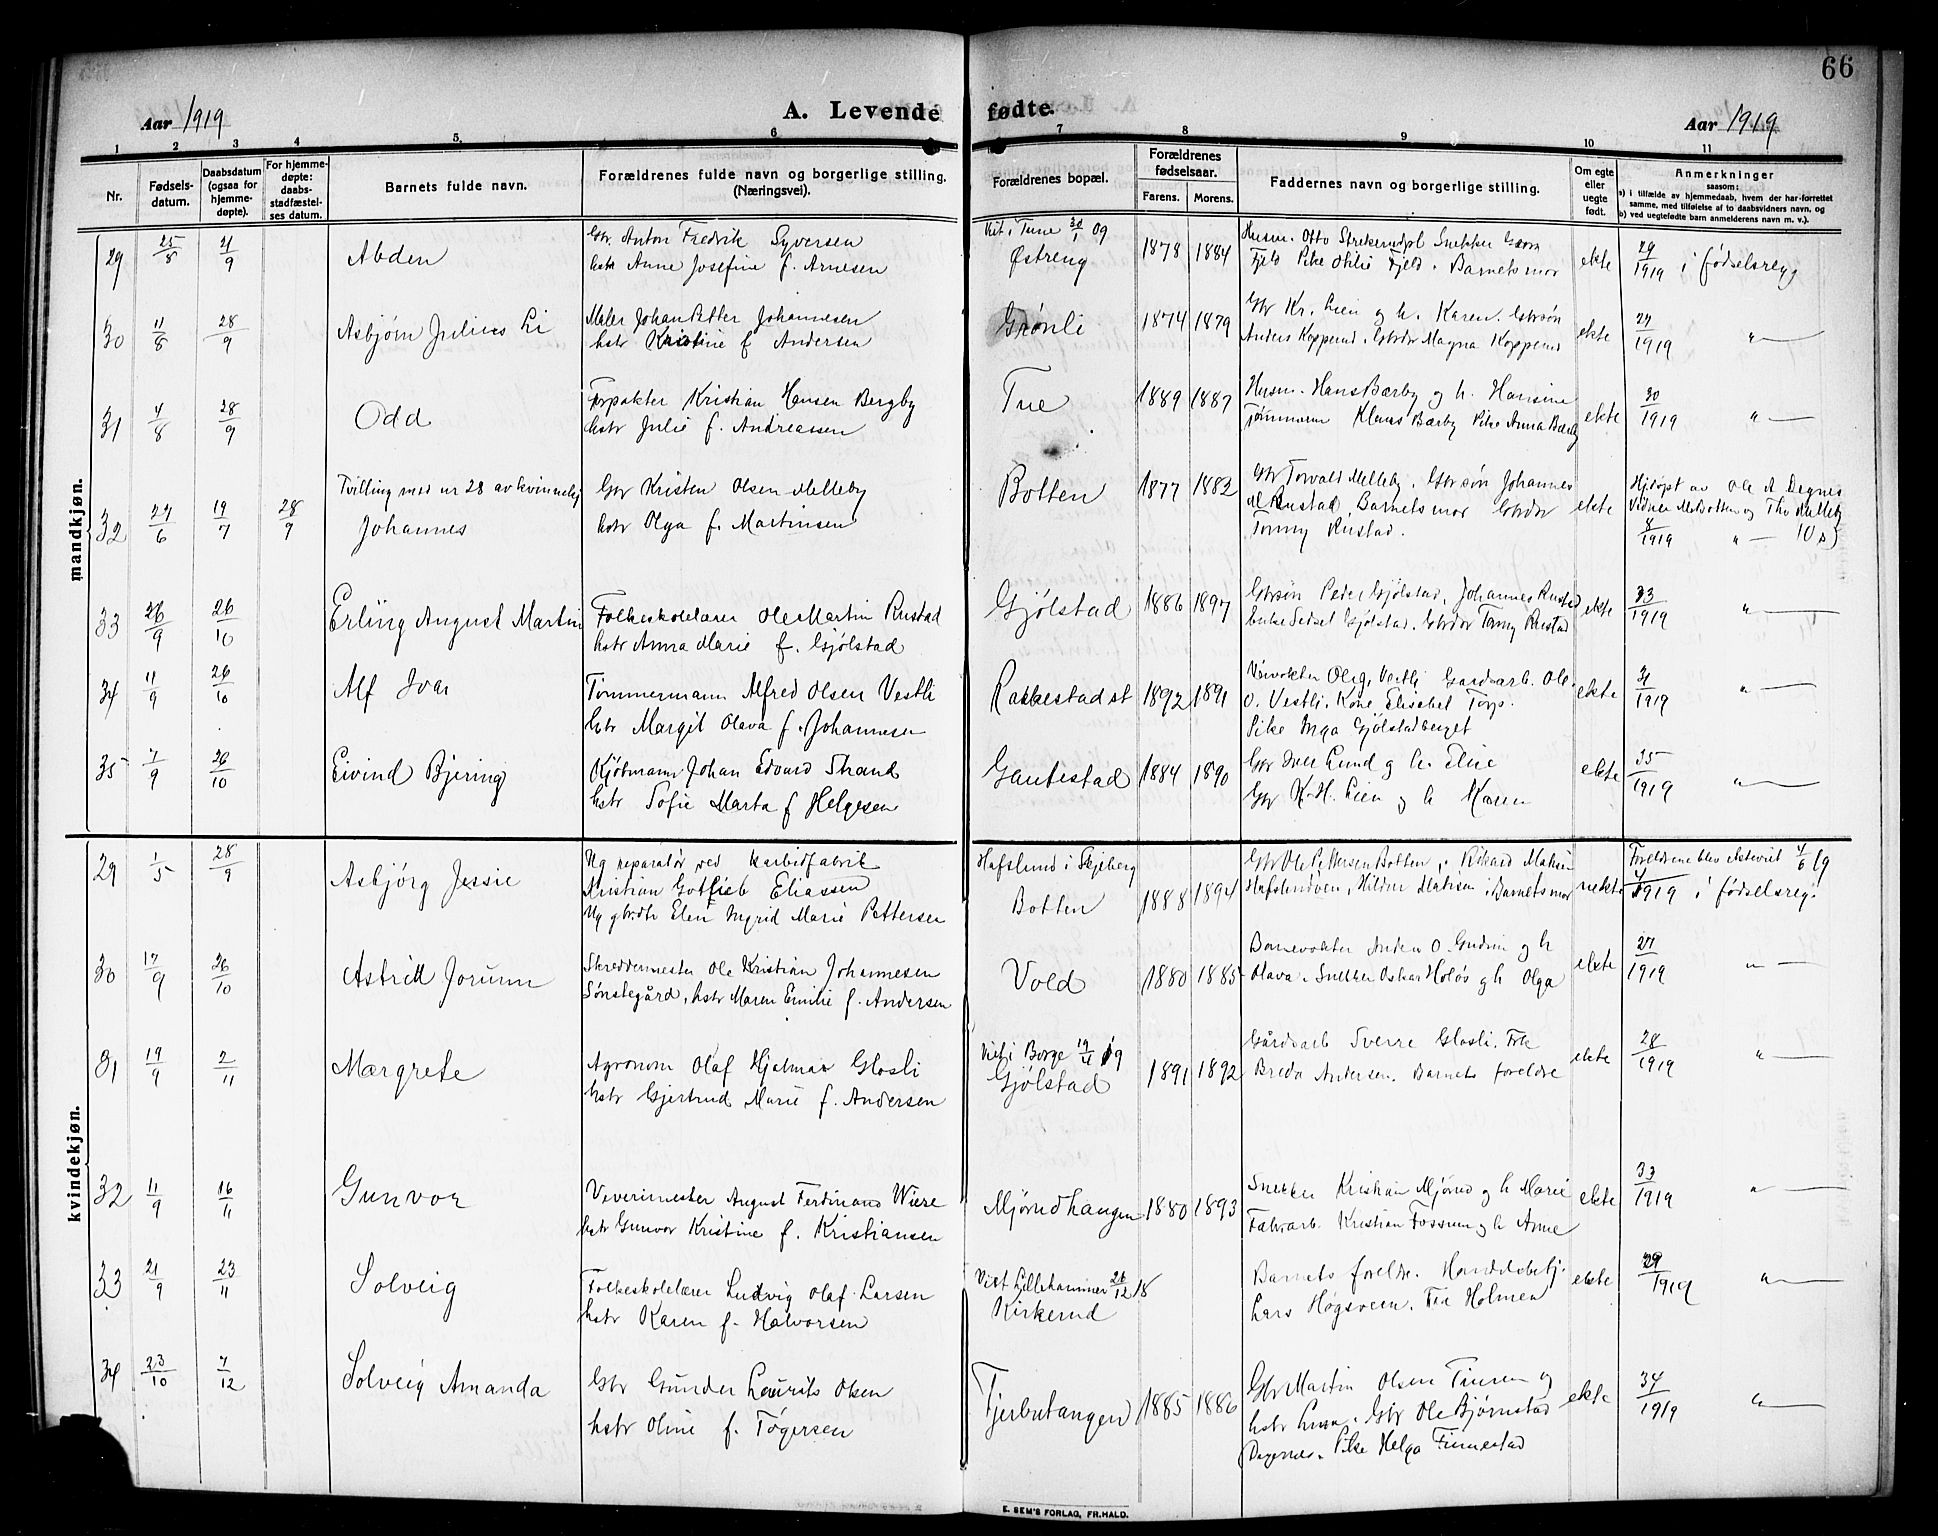 66
Aar 1919
A. Levende fødte.
Aar 1919
1 2 3 4 5. 6 7 8 9 10 11
Nr.
Fødsels-
datum.
Daabsdatum
(ogsaa for
hjemme-
døpte).
For hjemme-
døpte:
daabs-
stadfæstel-
ses datum.
Barnets fulde navn.
Forældrenes fulde navn og borgerlige stilling.
(Næringsvei).
Forældrenes bopæl.
Forældrenes
fødselsaar.
Farens. Morens.
Faddernes navn og borgerlige stilling.
Om egte
eller
uegte
født.
Anmerkninger
saasom:
a) i tilfælde av hjemmedaab, hvem der har forrettet
samme, med tilføielse af to daabsvidners navn, og
b) ved uegtefødte barn anmelderens navn m. v.).
mandkjøn.
29 25/8 21/9 Abden
Gbr. Anton Fredrik Syversen
hstr Anne Josefine f. Arnesen
Vict i Tune 30/1 09
Østreng
1878 1884
Husm. Otto Snekker
Fjeld Pike Otilie Fjeld. Barnets mor
ekte
29/1919 i fødselsreg
30 11/8 28/9 Asbjørn Julius Li
Maler Johan Petter Johannesen
hstr Kristine f Andersen
Grønli
1874 1879
Gbr Kr. Lien og h. Karen. Gbrsøn
Anders Kopperud. Gbrdr Magna Kopperud
ekte
27/1919 "
31 4/8 28/9 Odd
Forpakter Kristian Hansen Bergby
hstr Julie f. Andreassen
Tue
1889 1887
Husm. Hans Bærby og h. Hansine
Tømmerm Klaus Bærby Pike Anna Bærby
ekte
30/1919 "
32 27/6 19/7 28/9
Tvilling med nr 28 av kvinnekj
Johannes
Gbr Kristen Olsen Melleby
hstr Olga f. Martinsen
Botten
1877 1882
Gbr Torvald Melleby. Gbrsøn Johannes
Rustad, Barnets mor Gbrdr
Tonny Rustad.
ekte
Hjdøpt av Ole A Degnes
Vidner Botten og Melleby
8/1919 " 10 s)
33 26/9 26/10 Erling August Martin
Folkeskolelærer Ole Martin Rustad
hstr Anna Marie f. Gjølstad
Gjølstad
1886 1897
Gbrsøn Peder Gjølstad, Johannes Rustad
Enke Gjølstad. Gbrdr Tonny Rustad
ekte
33/1919 "
34 11/9 26/10 Alf Ivar
Tømmermann Alfred Olsen Vestli
hstr Margit Olava f. Johannesen
Rakkestad st
1892 1891
Veivokter Ole g. Vestli Gardarb. Ole
O. Vestli. Kone Elisabet Torp.
Pike Inga Gjølstadberget
ekte
31/1919 "
35 7/9 26/10 Eivind Bjering
Kjøbmann Johan Edvard Strand
hstr Sofie Marta f Helgesen
Gautestad
1884 1890
Gbr Iver Lund og h. Elise
Gbr K. H. Lien og h Karen
ekte
35/1919 "
kvindekjøn.
29 1/5 28/9 Asbjørg Jessie
Ug reparatør ved karbidfabrik
Kristian Gotlieb Eliassen
Ug gbrdtr Elen Ingrid Marie Pettersen
Hafslund i Skjeberg
Botten
1888 1894
Gbr Ole Pettersen Botten, Rikard Matisen
Hafslundven, Hildur Matisen, Barnets mor
uekte
Foreldrene blev ekteviet 4/6 19
4/1919 i fødselsreg.
30 17/9 26/10 Astrid Jorunn
Skreddermester Ole Kristian Johannesen
Sønstegård, hstr Maren Emilie f. Andersen
Vold
1880 1885
Banevokter Anders O. Gudim og h
Olava. Snekker Oskar Holøs og h Olga
ekte
27/1919 "
31 19/9 2/11 Margrete
Agronom Olaf Hjalmar Glosli
hstr Gjertrud Marie f. Andersen
Viet i Borge 19/4 19
Gjølstad
1891 1892
Gårdsarb Sverre Glosli. Frk
Breda Andersen. Barnets foreldre
ekte
28/1919 "
32 11/9 16/11 Gunvor
Vevermester August Ferdinand Wiere
hstr Gunvor Kristine f. Kristiansen
Mjørudhaugen
1880 1893
Snekker Kristian Mjørud og h Marie
Fabrarb. Kristian Fossum og h Anne
ekte
33/1919 "
33 21/9 23/11 Solveig
Folkeskolelærer Ludvig Olaf Larsen
hstr Karen f. Halvorsen
Viet Lillehammer 26/12 18
Kirkerud
Barnets foreldre. Handelsbetj.
Lars Høgsveen. Fru Holmen
ekte
29/1919 "
34 23/10 7/12 Solveig Amanda
Gbr Gunder Laurits Olsen
hstr Oline f. Tøgersen
Tjerbutangen
1885 1886
Gbr Martin Olsen Tiuren og
hstr Lusa. Gbr Ole Bjørnstad
Degernes. Pike Helga Finnestad
ekte
34/1919 "
E. SEM'S FORLAG, FR.HALD.